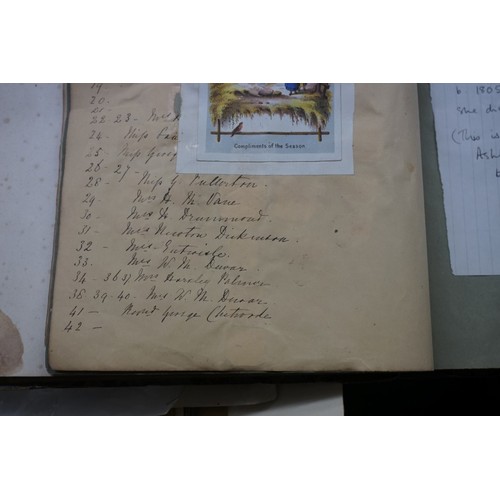 19
20 -
21 -
22 23 - Mrs
24 - Miss
25 Miss Georg
26 - 27 -
28 - Miss G. Fullerton.
29 Mrs H. M. Vane
30 - Mrs H Drummond
31 - Mrs Newton Dickenson.
32 - Mrs Entwisle.
33 Mrs W M. Dewar.
34 - 36 37 Mrs Horsley Palmer
38. 39. 40. Mrs W M. Dewar.
41 - Revd George Chetwode
42 -
Compliments of the Season.
b 1805
she di
(This w
Ash
b